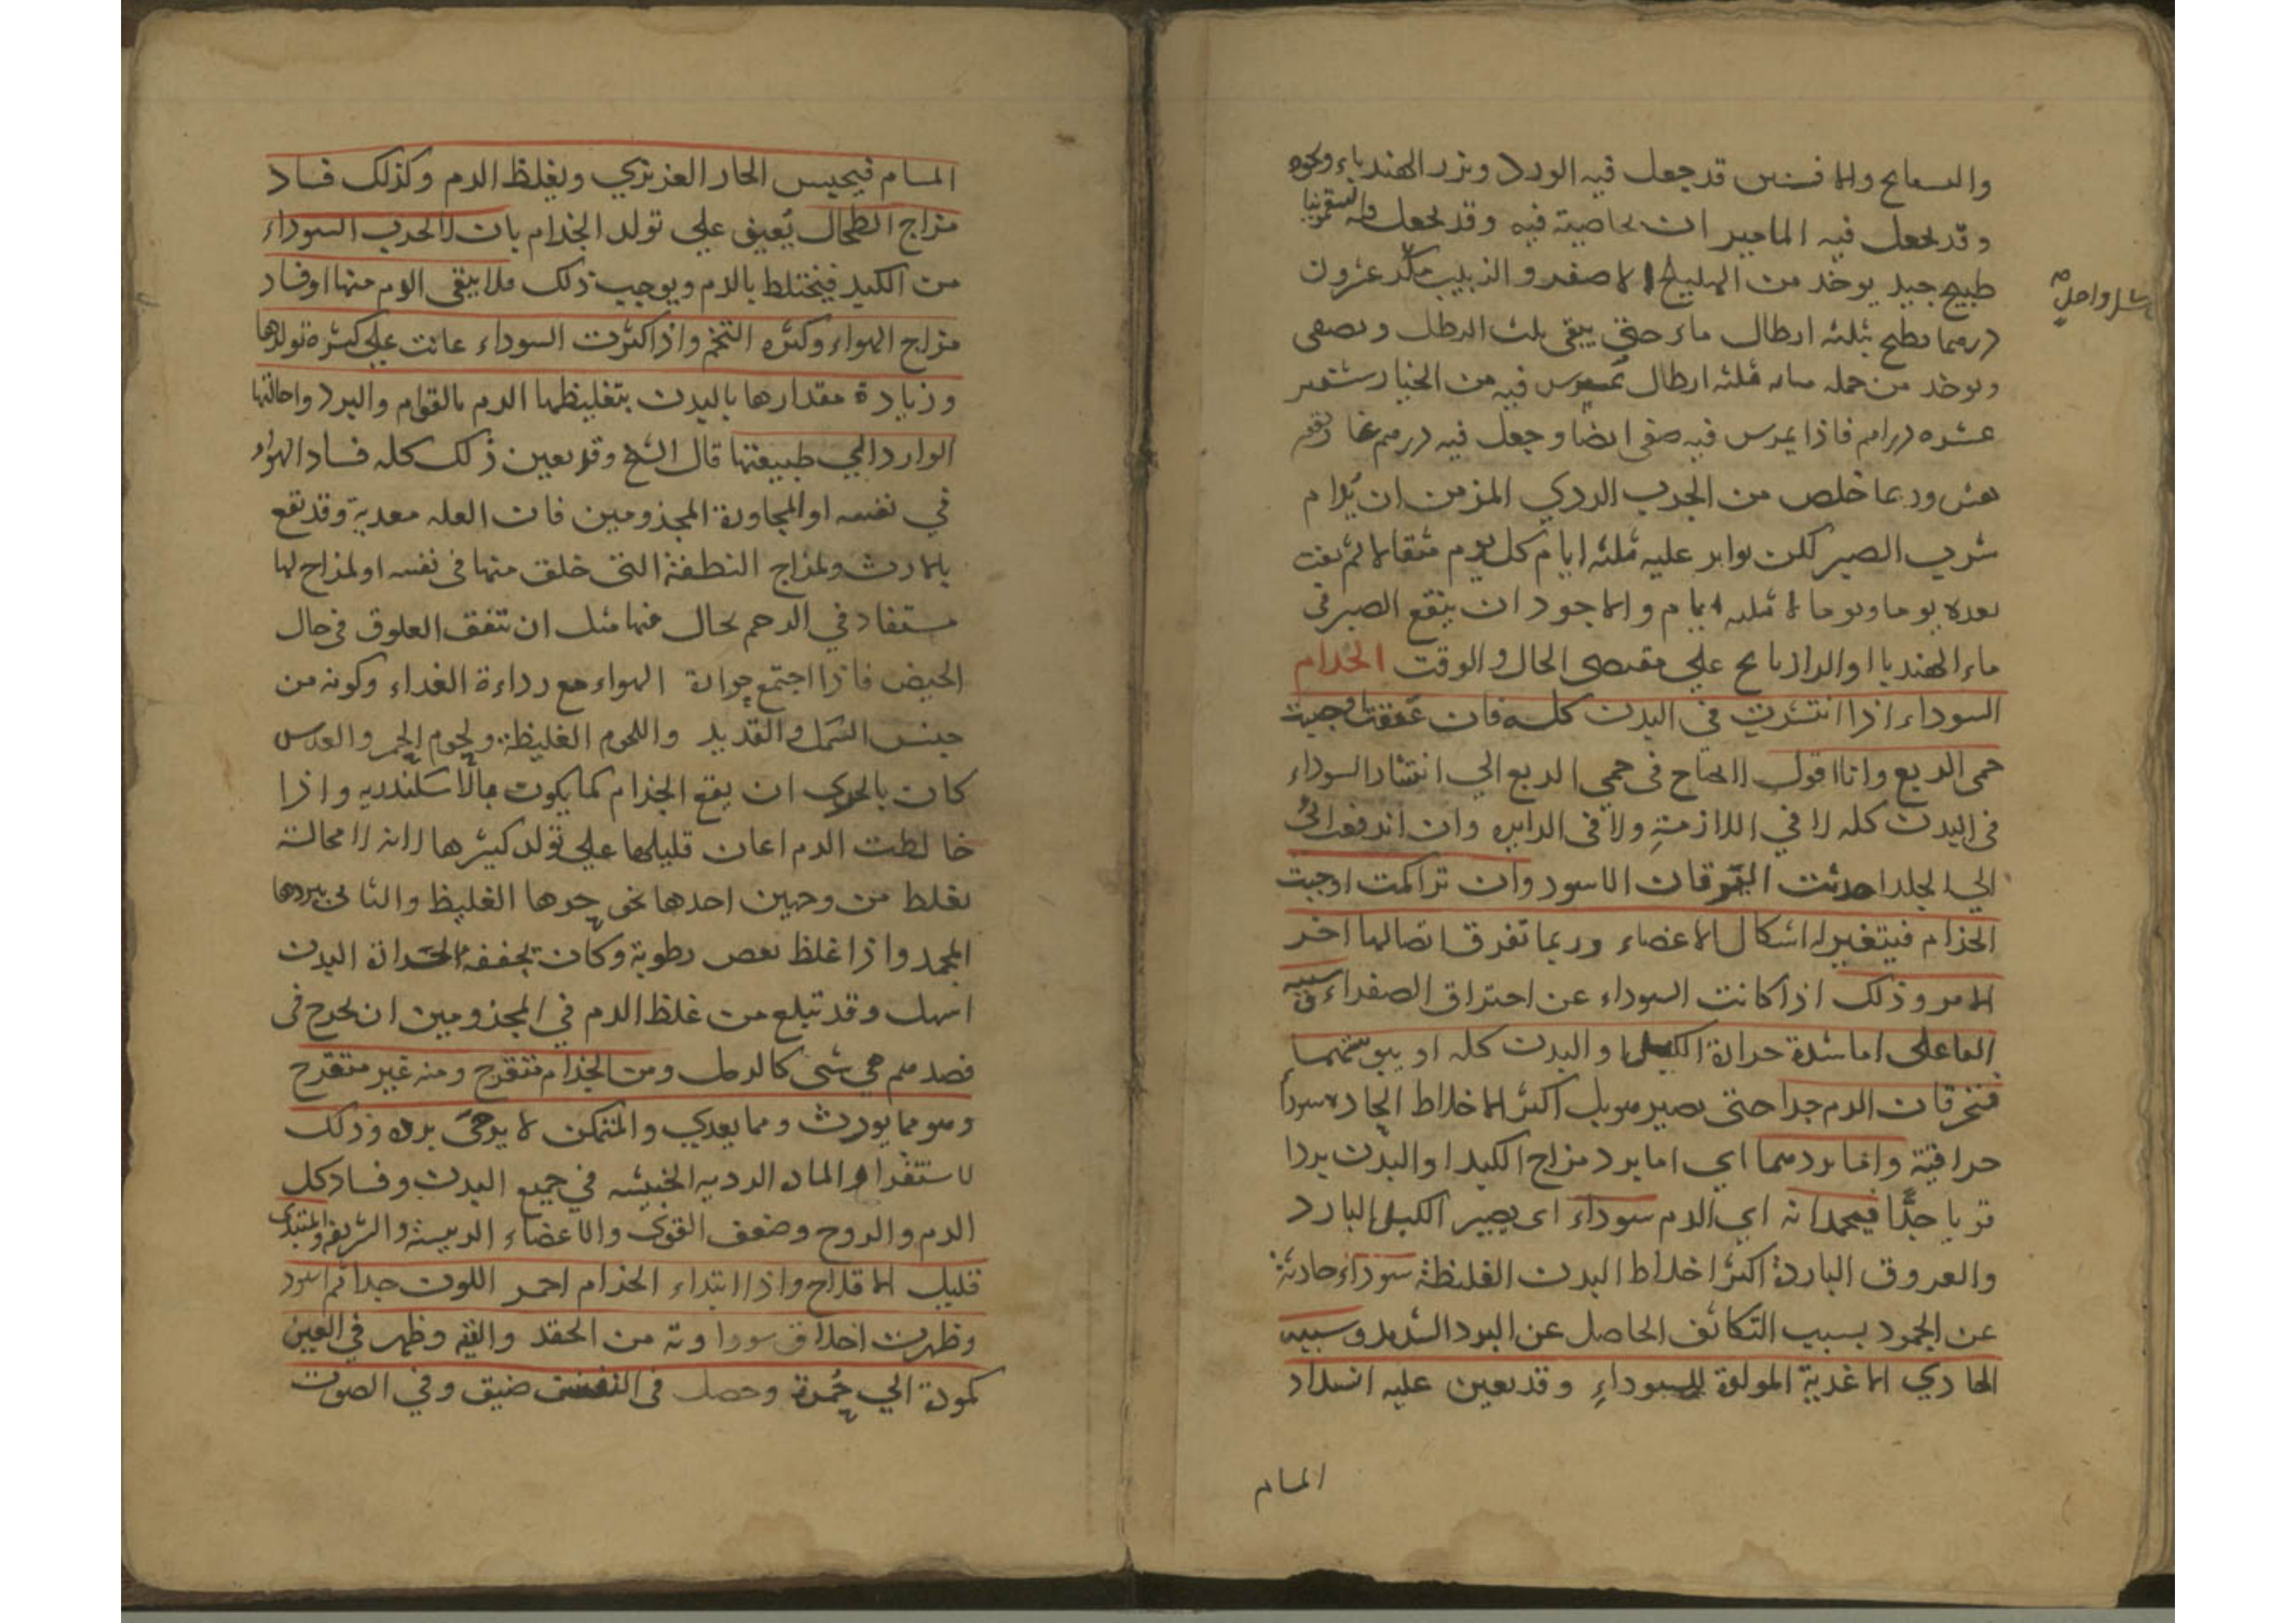 والبسفايج والافسنتين قد جعل فيه الورد وبزر الهندباء ونحوه
وقد يجعل فيه الماميران لخاصية فيه وقد يجعل فيه السقمونيا
طبيخ جيد يوخذ من الهليلج الاصفر والزبيب مكد عشرون
درهما يطبخ بثلثه ارطال ماء حتى يبقى ثلث الرطل ويصفى
ويوخذ من جمله مايه ثلثه ارطال يمرس فيه من الخيار شنبر
عشره دراهم فاذا يمرس فيه صفى ايضا وجعل فيه درهم غاريقون
وربما خلص من الجرب الردي المزمن ان يدام
شرب الصبر لكن يواتر عليه ثلثه ايام كل يوم مثقالا ثم يغب
بعده يوما ويوما لا ثلثه ايام والاجود ان ينقع الصبر في
ماء الهندبا او الرازيانج علي مقتضى الحال والوقت الجذام
السوداء اذا انتشرت في البدن كله فان عفنت اوجبت
حمى الربع وانا اقول لا احتاج في حمي الربع الي انتشار السوداء
في البدن كله لا في اللازمة ولا في الدايره وان اندفعت
الي الجلد احدثت اليرقان الاسود وان تراكمت اوجبت
الجذام فيتغير له اشكال الاعضاء وربما تفرق اتصالها اخر
الامر وذلك اذا كانت السوداء عن احتراق الصفراء سببه
الفاعلى اما شدة حرارة الكبد او البدن كله او يبوستهما
فتحرقان الدم جدا حتى يصير هو بل اكثر الاخلاط الحاره سودا
حراقية واما بردهما اي اما برد مزاج الكبد او البدن بردا
قويا جدًّا فيجمدانه اي الدم سوداء اى يصير الكبد البارد
والعروق الباردة اكثر اخلاط البدن الغليظة سوداء حادثة
عن الجمود بسبب التكاثف الحاصل عن البرد الشديد وسببه
المادي الاغذية المولدة للسوداءِ وقد يعين عليه انسداد
المسام
المسام فيحبس الحار الغريزي ويغلظ الدم وكذلك فساد
مزاج الطحال يُعين علي تولد الجذام بان لا يجذب السوداء
من الكبد فيختلط بالدم ويوجب ذلك ملا يبقى الدم منها او فساد
مزاج الهواء وكثره التخم واذا كثرت السوداء عانت علي كثرة تولدها
وزيادة مقدارها بالبدن بتغليظها الدم بالقوام والبرد واحالتها
الوارد الي طبيعتها قال الشيخ وقد يعين ذلك كله فساد الهواء
في نفسه او المجاورة المجذومين فان العله معدية وقد تقع
بالارث ولمزاج النطفة التي خلق منها في نفسه او لمزاج لها
مستفاد في الرحم بحال فيها مثل ان تتفق العلوق في حال
الحيض فاذا اجتمع حرارة الهواء مع رداءة الغداء وكونه من
جنس السمك والقديد واللحوم الغليظة ولحوم الحمر والعدس
كان بالحرى ان يقع الجذام كما يكون بالاسكندريه واذا
خالطت الدم اعان قليلها علي تولد كثيرها لانه لا محالة
يغلظ من وجهين احدها نحو جوهرها الغليظ والثانى ببردها
المجمد واذا غلظ بعض رطوبة وكان تجففه الحرارة البدن
اسهل وقد تبلع من غلظ الدم في المجذومين ان يخرج في
فصدهم هي شى كالرمل ومن الجذام متقرح ومنه غير متقرح
وهو مما يورث ومما يعدي والمتمكن لا يرجى برءه وذلك
لاستقرار الماده الرديه الخبيثه في جميع البدن وفساد كل
الدم والروح وضعف القوى والاعضاء الرييسة والشريفه والمبتدى
قليل الاقلاح واذا ابتداء الجذام احمر اللون جدا ثم اسود
وظهرت اخلاق سوداوية من الحقد والتيه وظهر في العين
كمودة الي حُمرة وحصل في النفس ضيق وفي الصوت